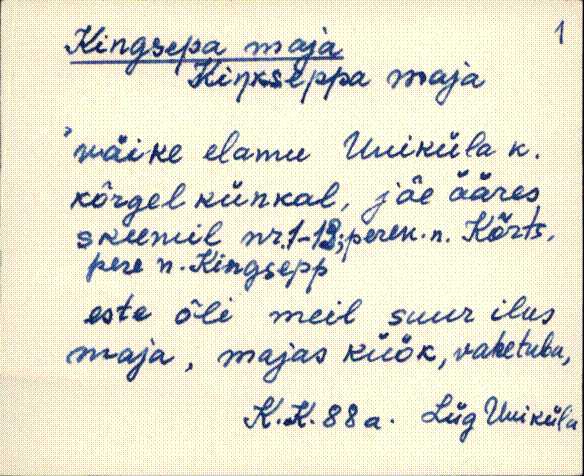 1
Kingsepa maja
Kiŋkseppa maja
väike elamu Uniküla k.
kõrgel künkal, jõe ääres,
skeemil nr.1-12; perek. n. Kõrts,
pere n. Kingsepp
este õli meil suur ilus
maja, majas küök, vahetuba,
K.K. 88 a. Lüg Uniküla